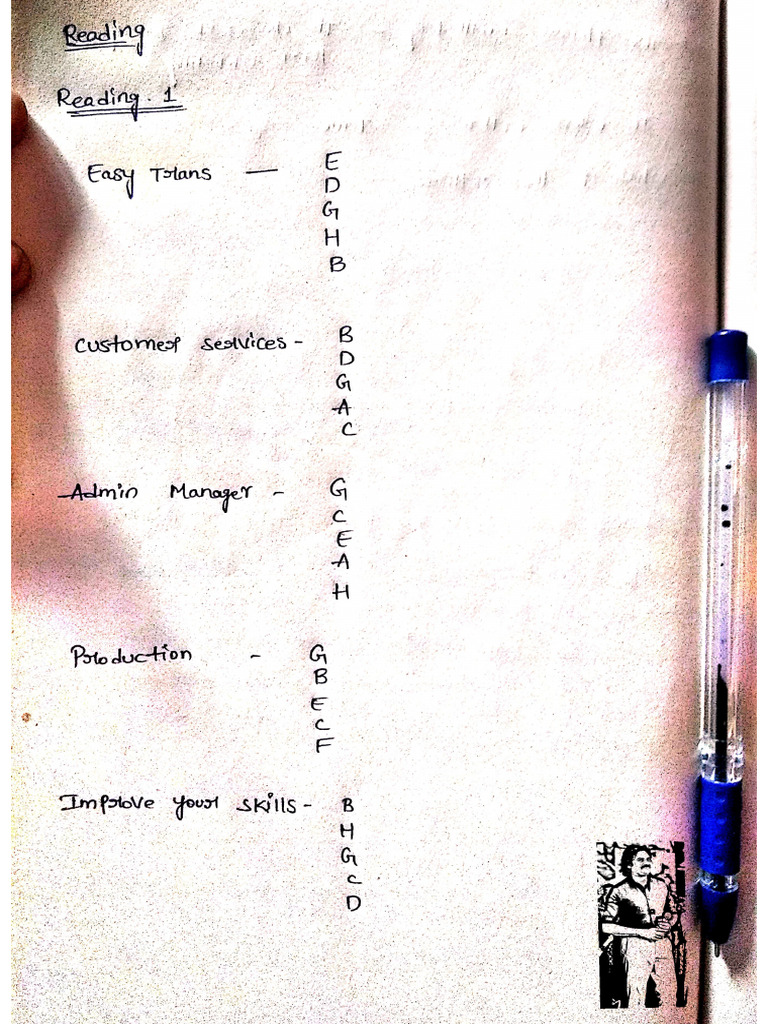 Reading
Reading. 1
Easy Trans — E
D
G
H
B
Customer services - B
D
G
A
C
Admin Manager - G
C
E
A
H
Production - G
B
E
C
F
Improve your skills - B
H
G
C
D